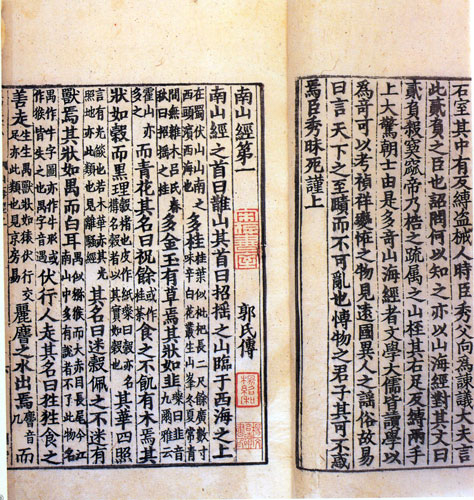 石室其中有反縛盗械人時臣秀父向為諫議大夫言
此貳負之臣也詔問何以知之亦以山海經對其文曰
貳負殺窫窳帝乃梏之疏屬之山桎其右足反縛兩手
上大驚朝士由是多竒山海經者文學大儒皆讀學以
為竒可以考禎祥變怪之物見遠國異人之謡俗故易
曰言天下之至賾而不可亂也愽物之君子其可不惑
焉臣秀昧死謹上
南山經第一 郭氏傳
南山經之首曰䧿山其首曰招揺之山臨于西海之上
在蜀伏山山南之西頭濵西海也多桂桂葉似枇杷長二尺餘廣數寸味辛白花叢生山峯冬夏常青
間無雜木吕氏春秋曰招揺之桂多金玉有草焉其狀如韭璨曰韭音九爾雅云
霍山亦多之而青花其名曰祝餘或作桂荼食之不飢有木焉其
狀如榖而黒理榖楮也皮作紙璨曰榖亦名構名榖者以其實如榖也其華四照
言有光燄也若木華赤其光照地亦此類也見離騷經其名曰迷榖佩之不迷有
獸焉其狀如禺而白耳禺似獼猴而大赤目長尾今江南山中多有說者不了此物名
禺作牛字圖亦作牛形或作猴皆失之也禺字音遇伏行人走其名曰狌狌食之
善走生生禺獸狀如猿伏行交足亦此類也見京房易麗𪊨之水出焉𪊨音几而